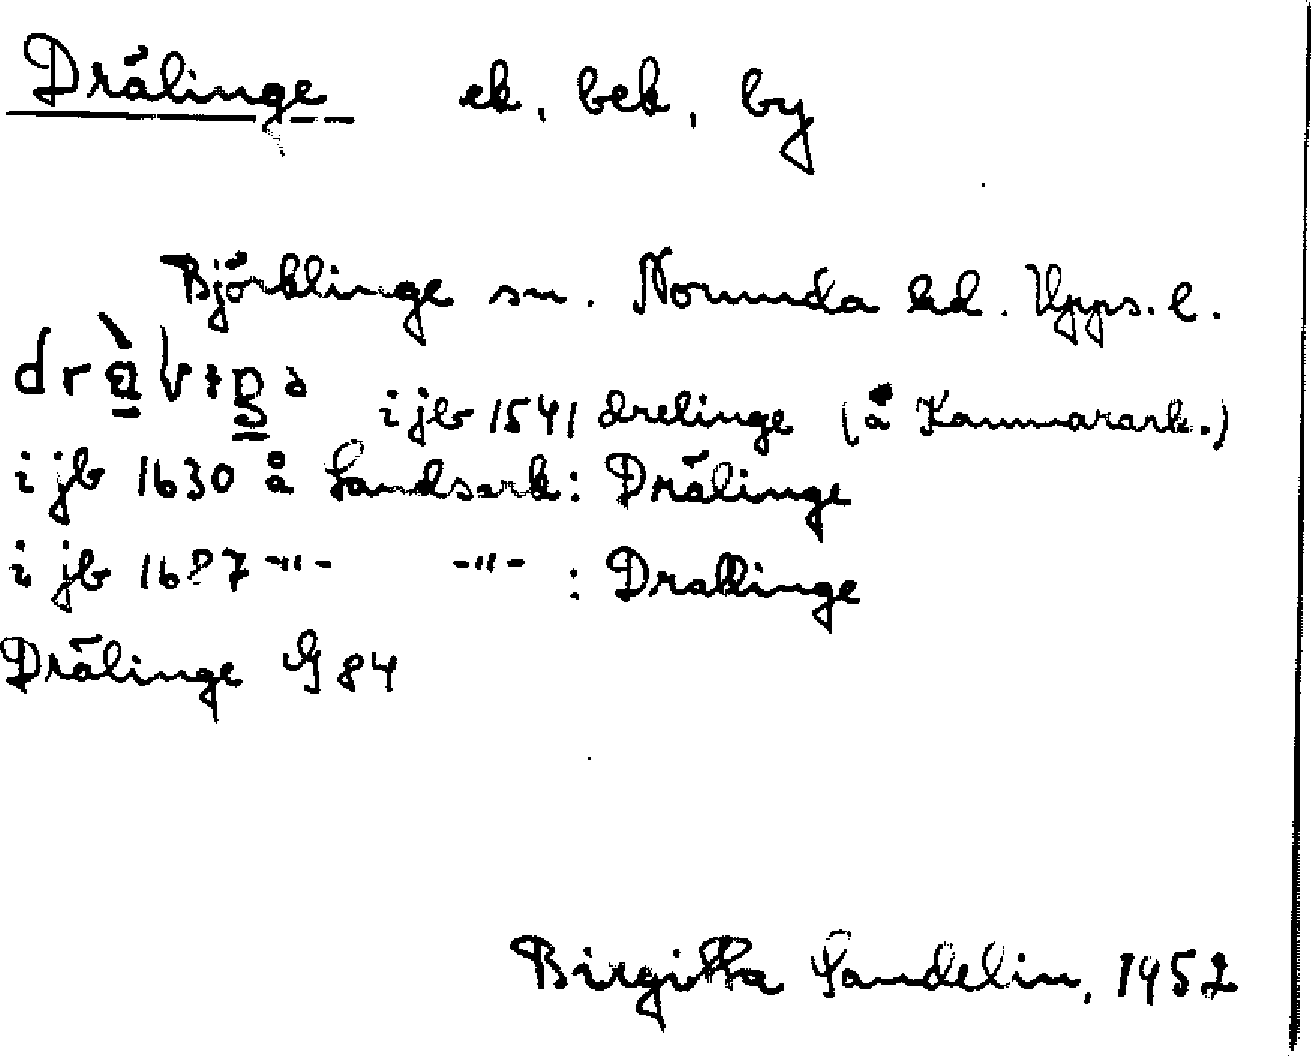 Drälinge ek, bek, by
Björklinge sn. Norunda hd. Upps. l.
i jb 1541 drelinge (å Kammarark.)
i jb 1630 å Landsark: Drälinge
i jb 1687 -"- -"- : Drallinge
Drälinge G 84
Birgitta Sandelin, 1952